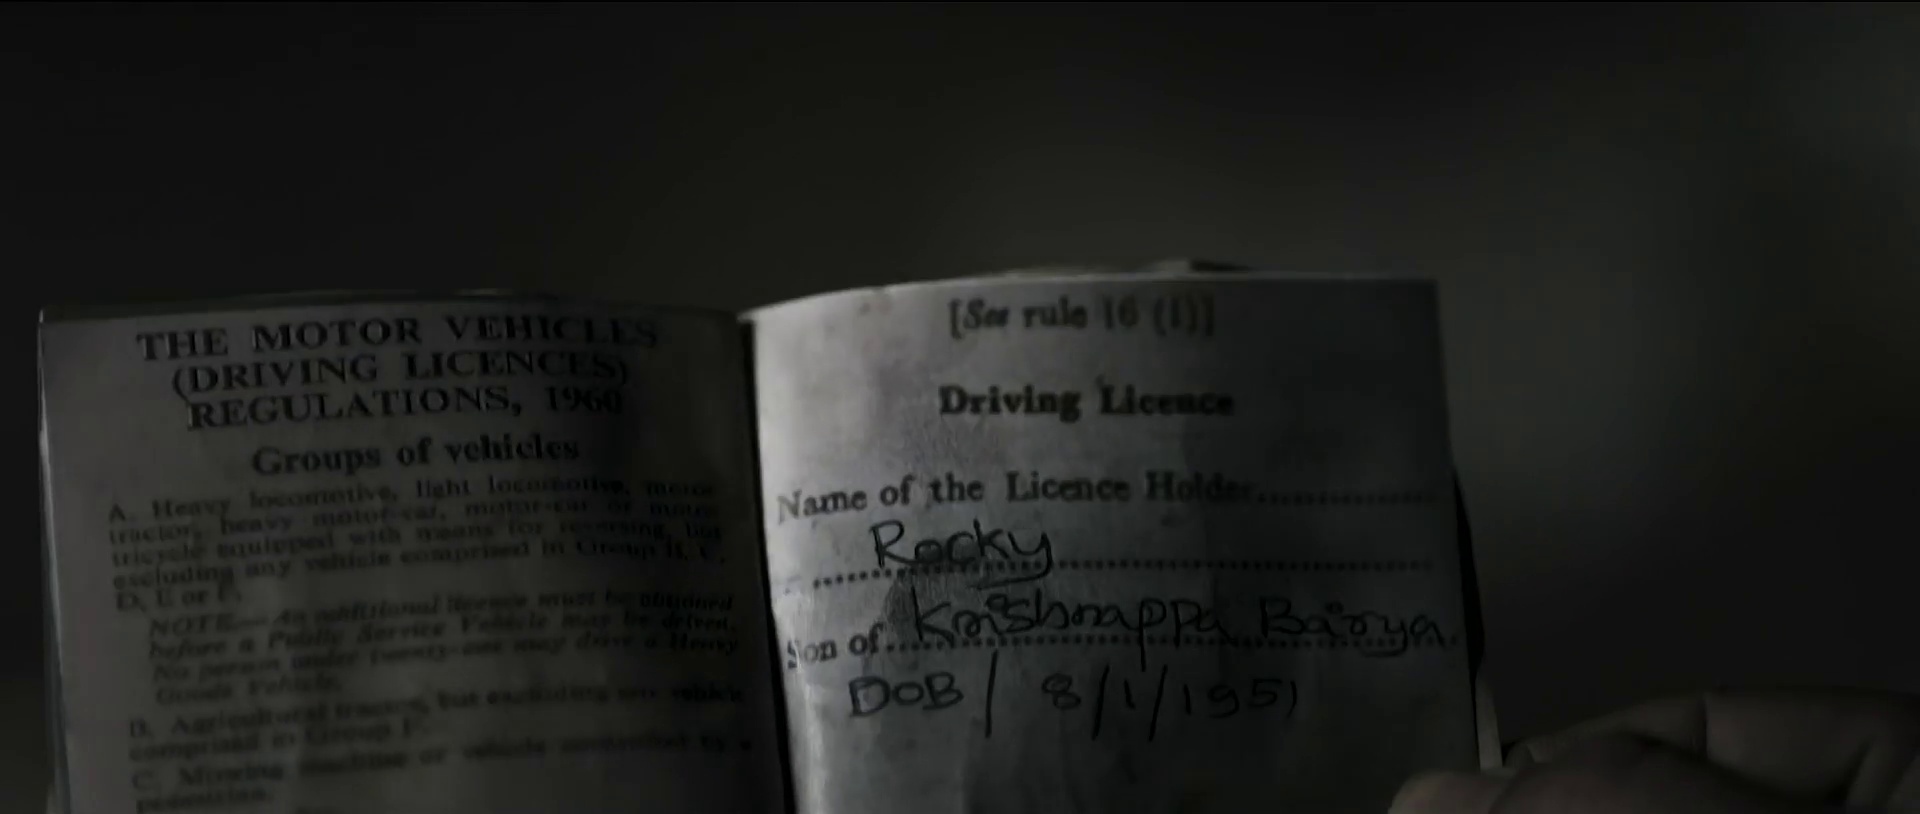 THE MOTOR VEHICLES
(DRIVING LICENCES)
REGULATIONS, 1960
Groups of vehicles
A. Heavy locomotive, light locomotive, motor
tractor, heavy motor-car, motor-car or motor
tricycle equipped with means for reversing, but
excluding any vehicle comprised in Group B, C,
D, E or F.
NOTE.—An additional licence must be obtained
before a Public Service Vehicle may be driven.
No person under twenty-one may drive a Heavy
Goods Vehicle.
B. Agricultural tractor, but excluding any vehicle
comprised in Group F.
C. Mowing machine or vehicle controlled by a
pedestrian.
[See rule 16 (1)]
Driving Licence
Name of the Licence Holder
Rocky
Son of Krishnappa Bairya
DOB / 8/1/1951